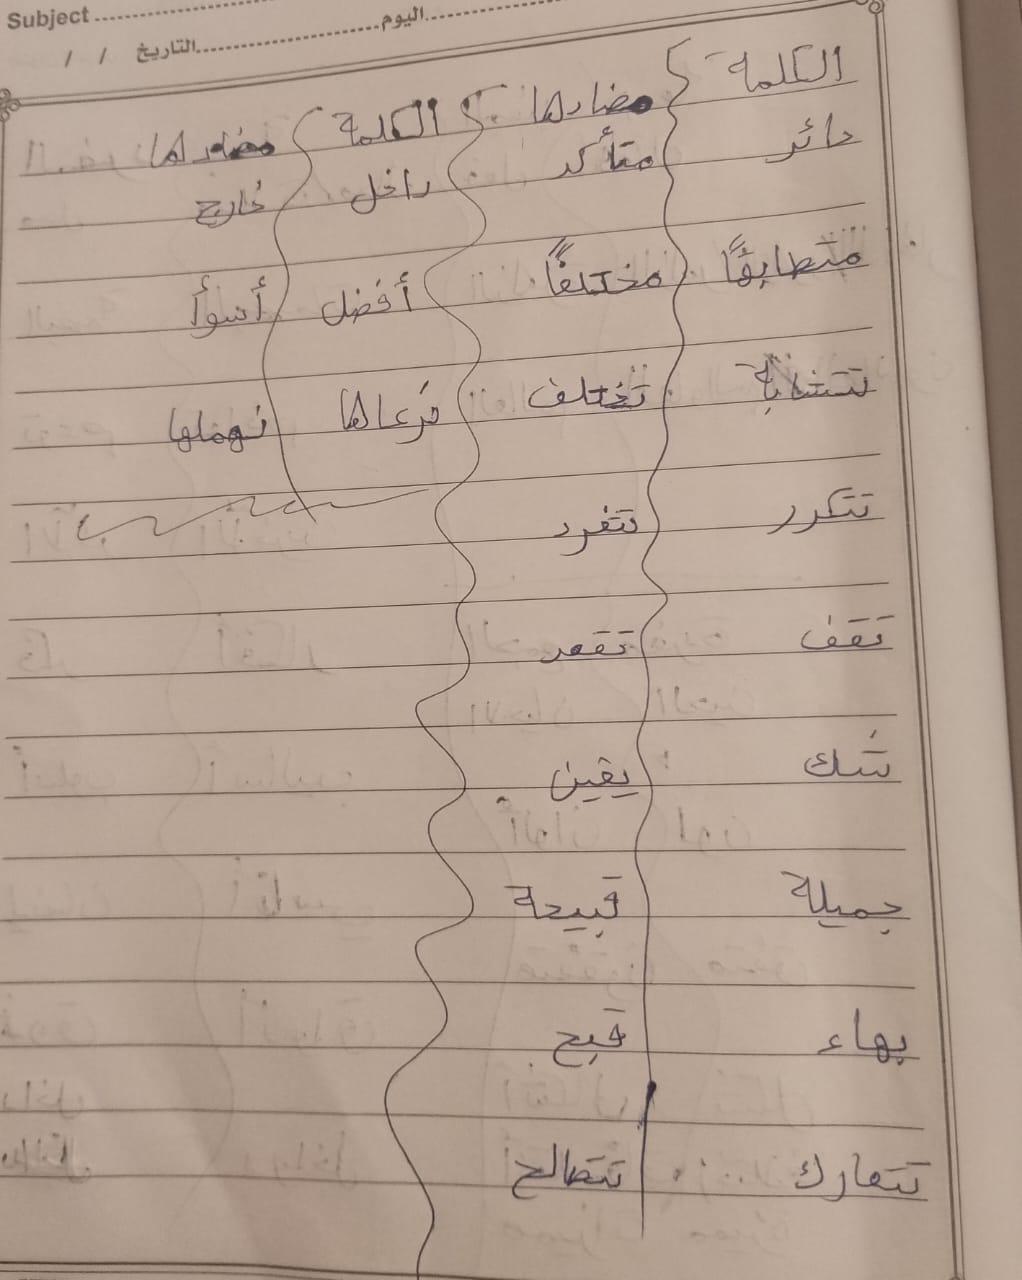 Subject ........ اليوم ........
التاريخ ........ / /
الكلمة مضادها الكلمة مضادها
حائر متأكد داخل خارج
متطابقًا مختلفًا أفضل أسوأ
تتشابة تختلف نرعاها نهملها
تتكرر تتفرد
تقف تقعد
شك يقين
جميلة قبيحة
بهاء قبح
تتعارك تتصالح